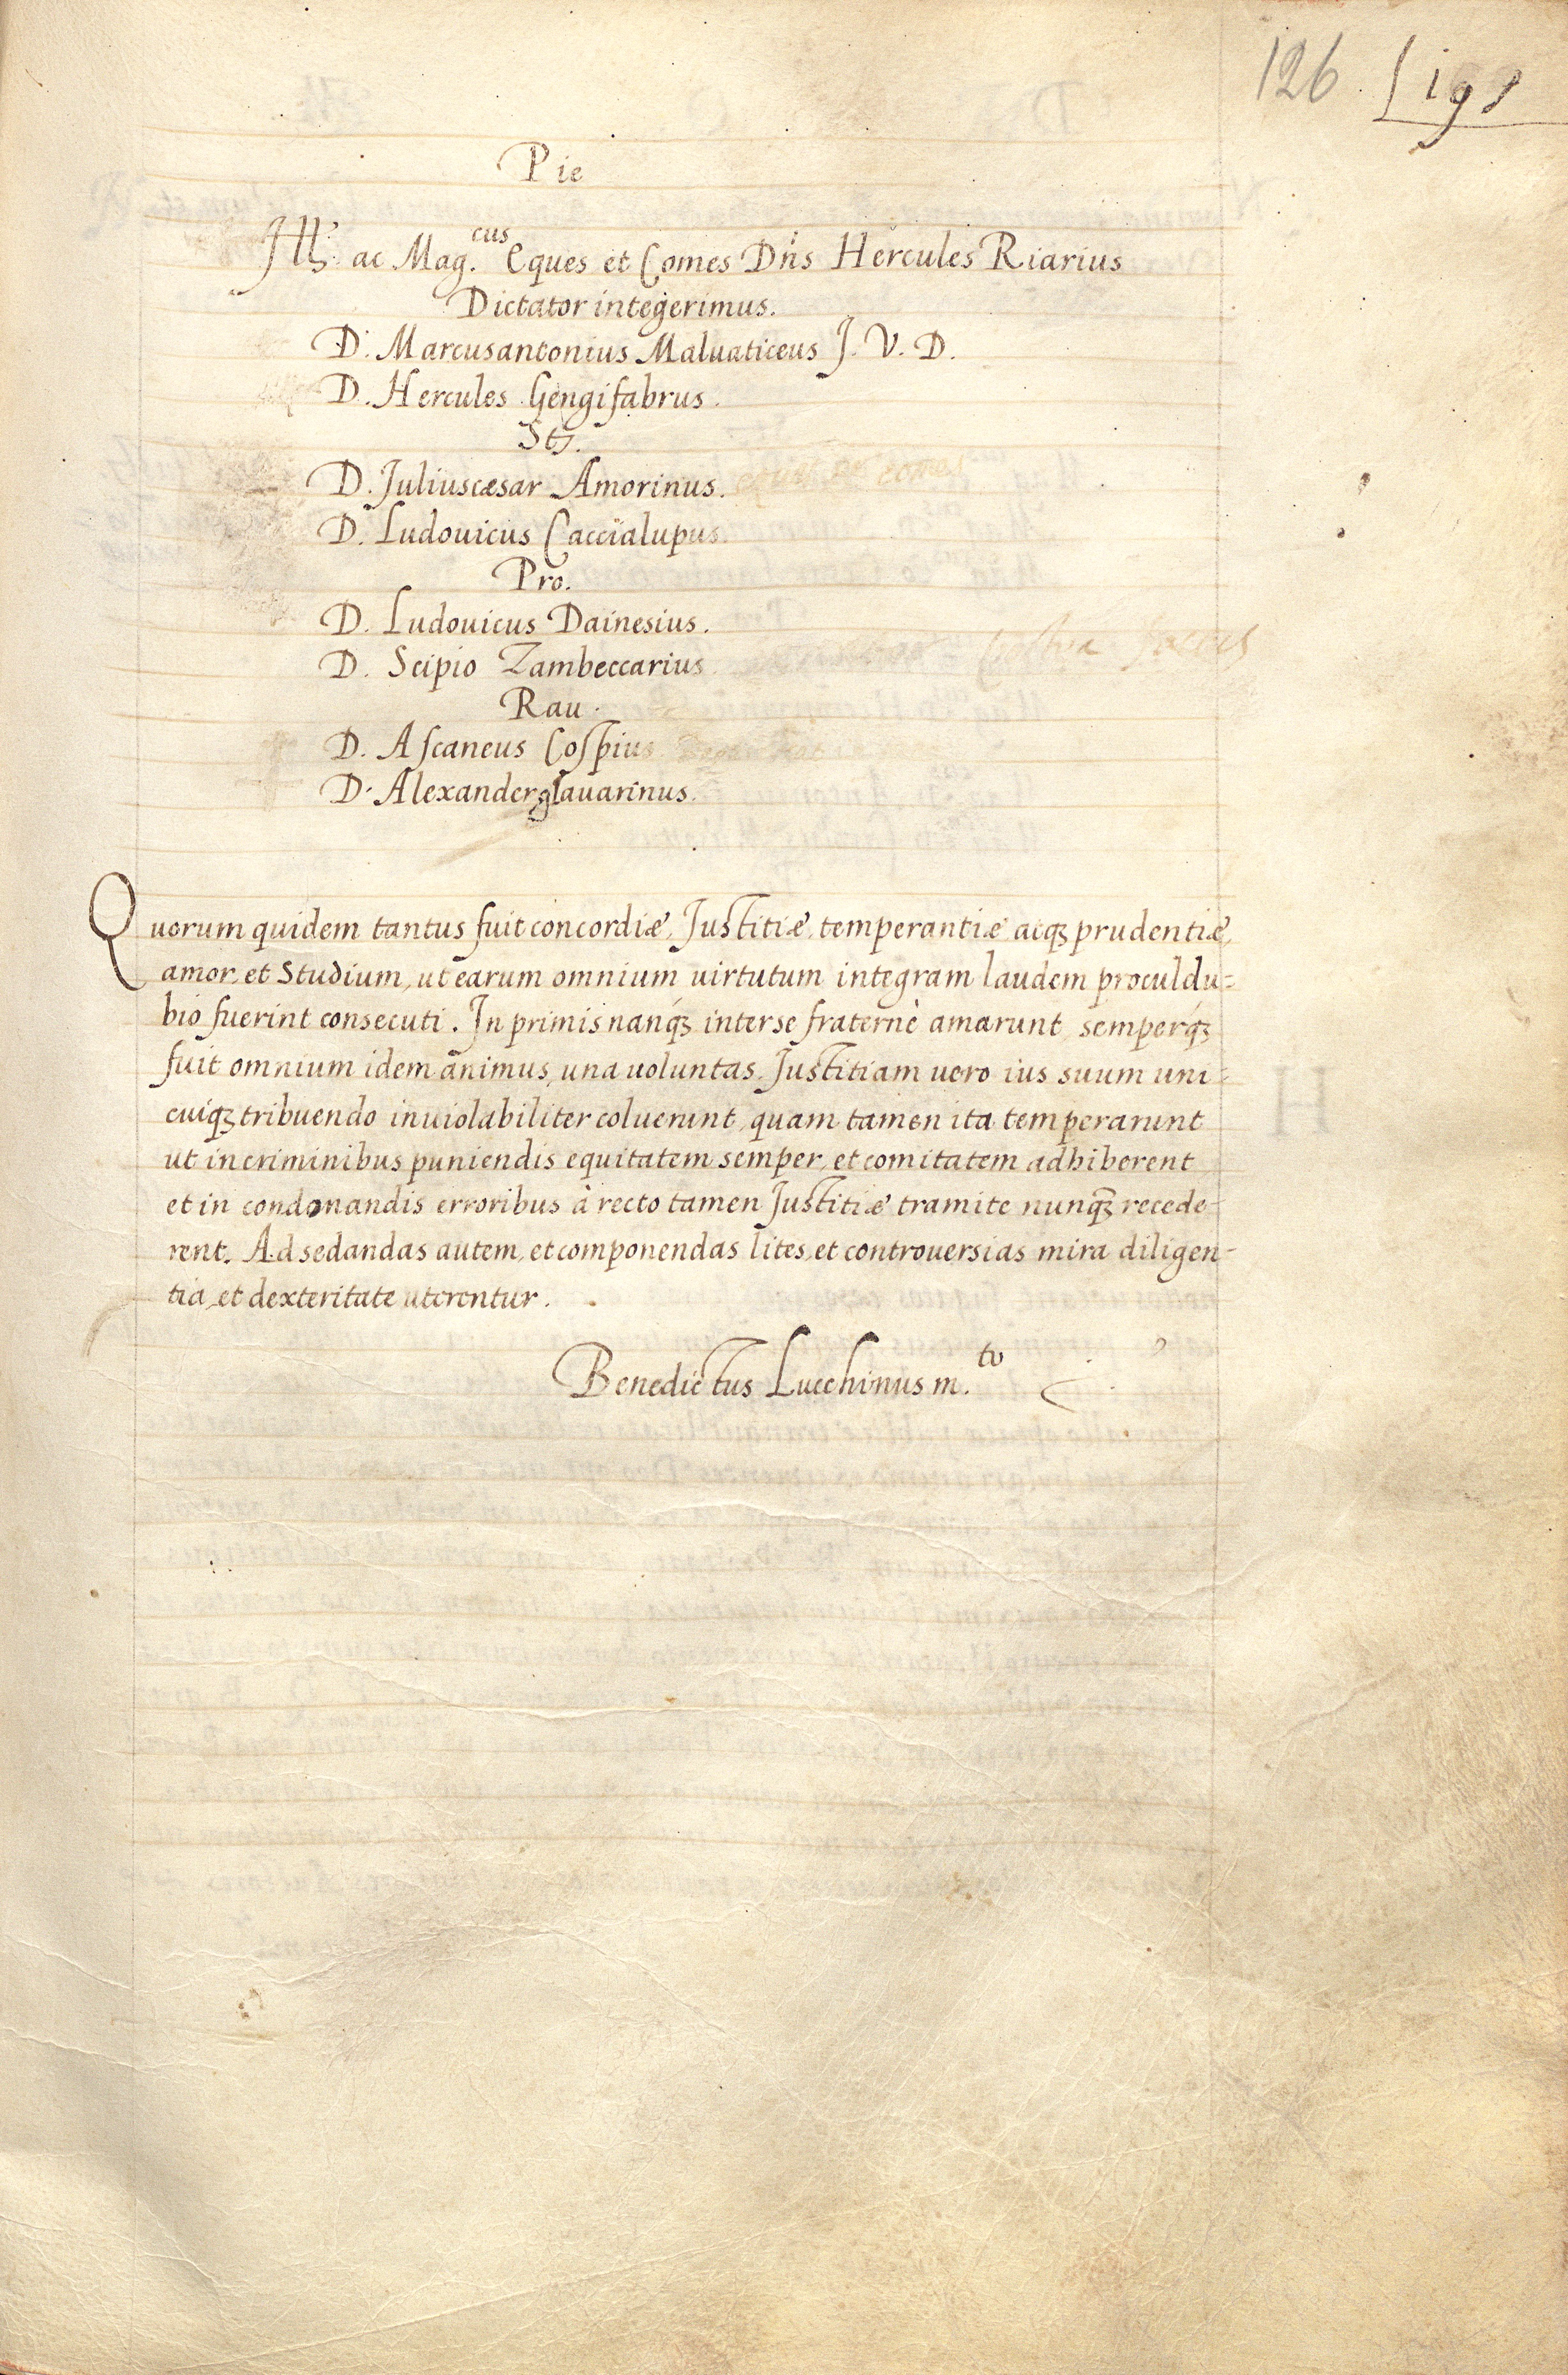 126
Pie
Ill: ac Mag.cus Eques et Comes Dñs Hercules Riarius
Dictator integerimus.
D. Marcusantonius Maluaticeus J. V. D.
D. Hercules Gengifabrus.
Sts.
D. Juliuscæsar Amorinus.
D. Ludouicus Caccialupus.
Pro.
D. Ludouicus Dainesius.
D. Scipio Zambeccarius
Rau.
D. Ascaneus Cospius
D. Alexander glauarinus.
Quorum quidem tantus fuit concordiæ, Justitiæ, temperantiæ atqꝫ prudentiæ,
amor, et Studium, ut earum omnium uirtutum integram laudem proculdu-
bio fuerint consecuti. In primis nanqꝫ inter se fraternè amarunt, semperqꝫ
fuit omnium idem animus, una uoluntas. Justitiam uero ius suum uni-
cuiqꝫ tribuendo inuiolabiliter coluerunt, quam tamen ita temperarunt
ut in criminibus puniendis equitatem semper, et comitatem adhiberent
et in condonandis erroribus à recto tamen Justitiæ tramite nunqꝫ recede-
rent. Ad sedandas autem, et componendas lites, et controuersias mira diligen-
tia, et dexteritate uterentur.
Benedictus Lucchinus m.to